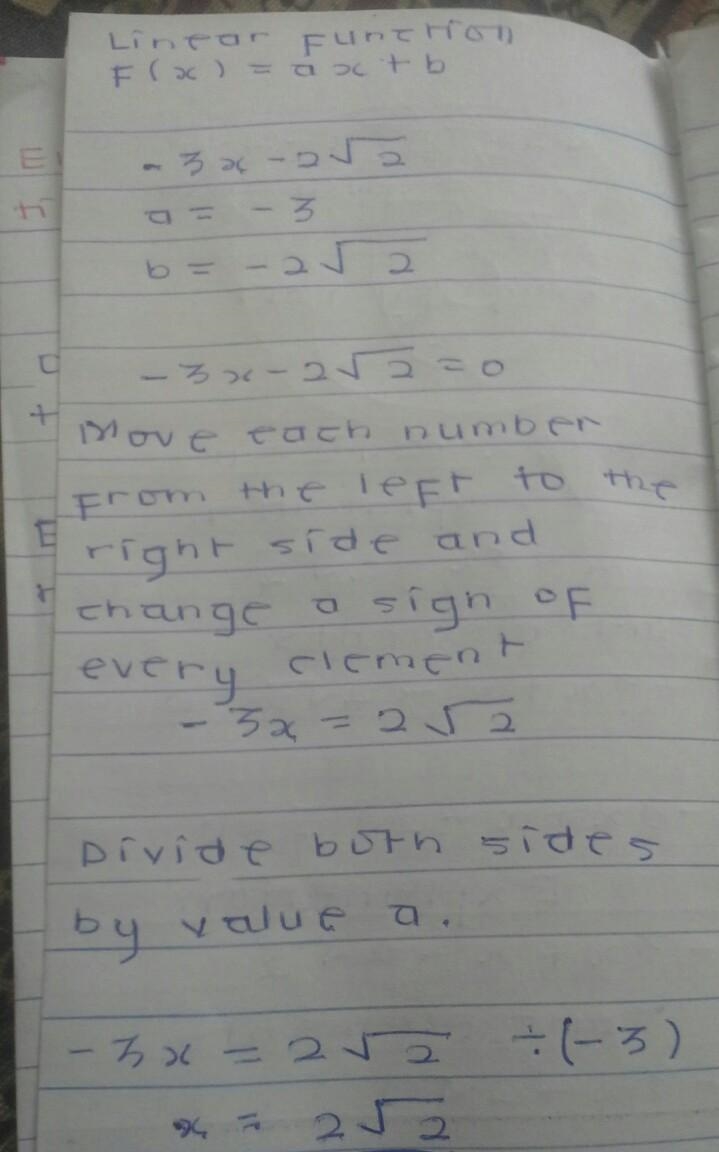 Linear Function
F(x) = ax + b
- 3x - 2√2
a = - 3
b = - 2√2
- 3x - 2√2 = 0
Move each number
From the left to the
right side and
change a sign of
every element
- 3x = 2√2
Divide both sides
by value a.
- 3x = 2√2 ÷(-3)
x = 2√2